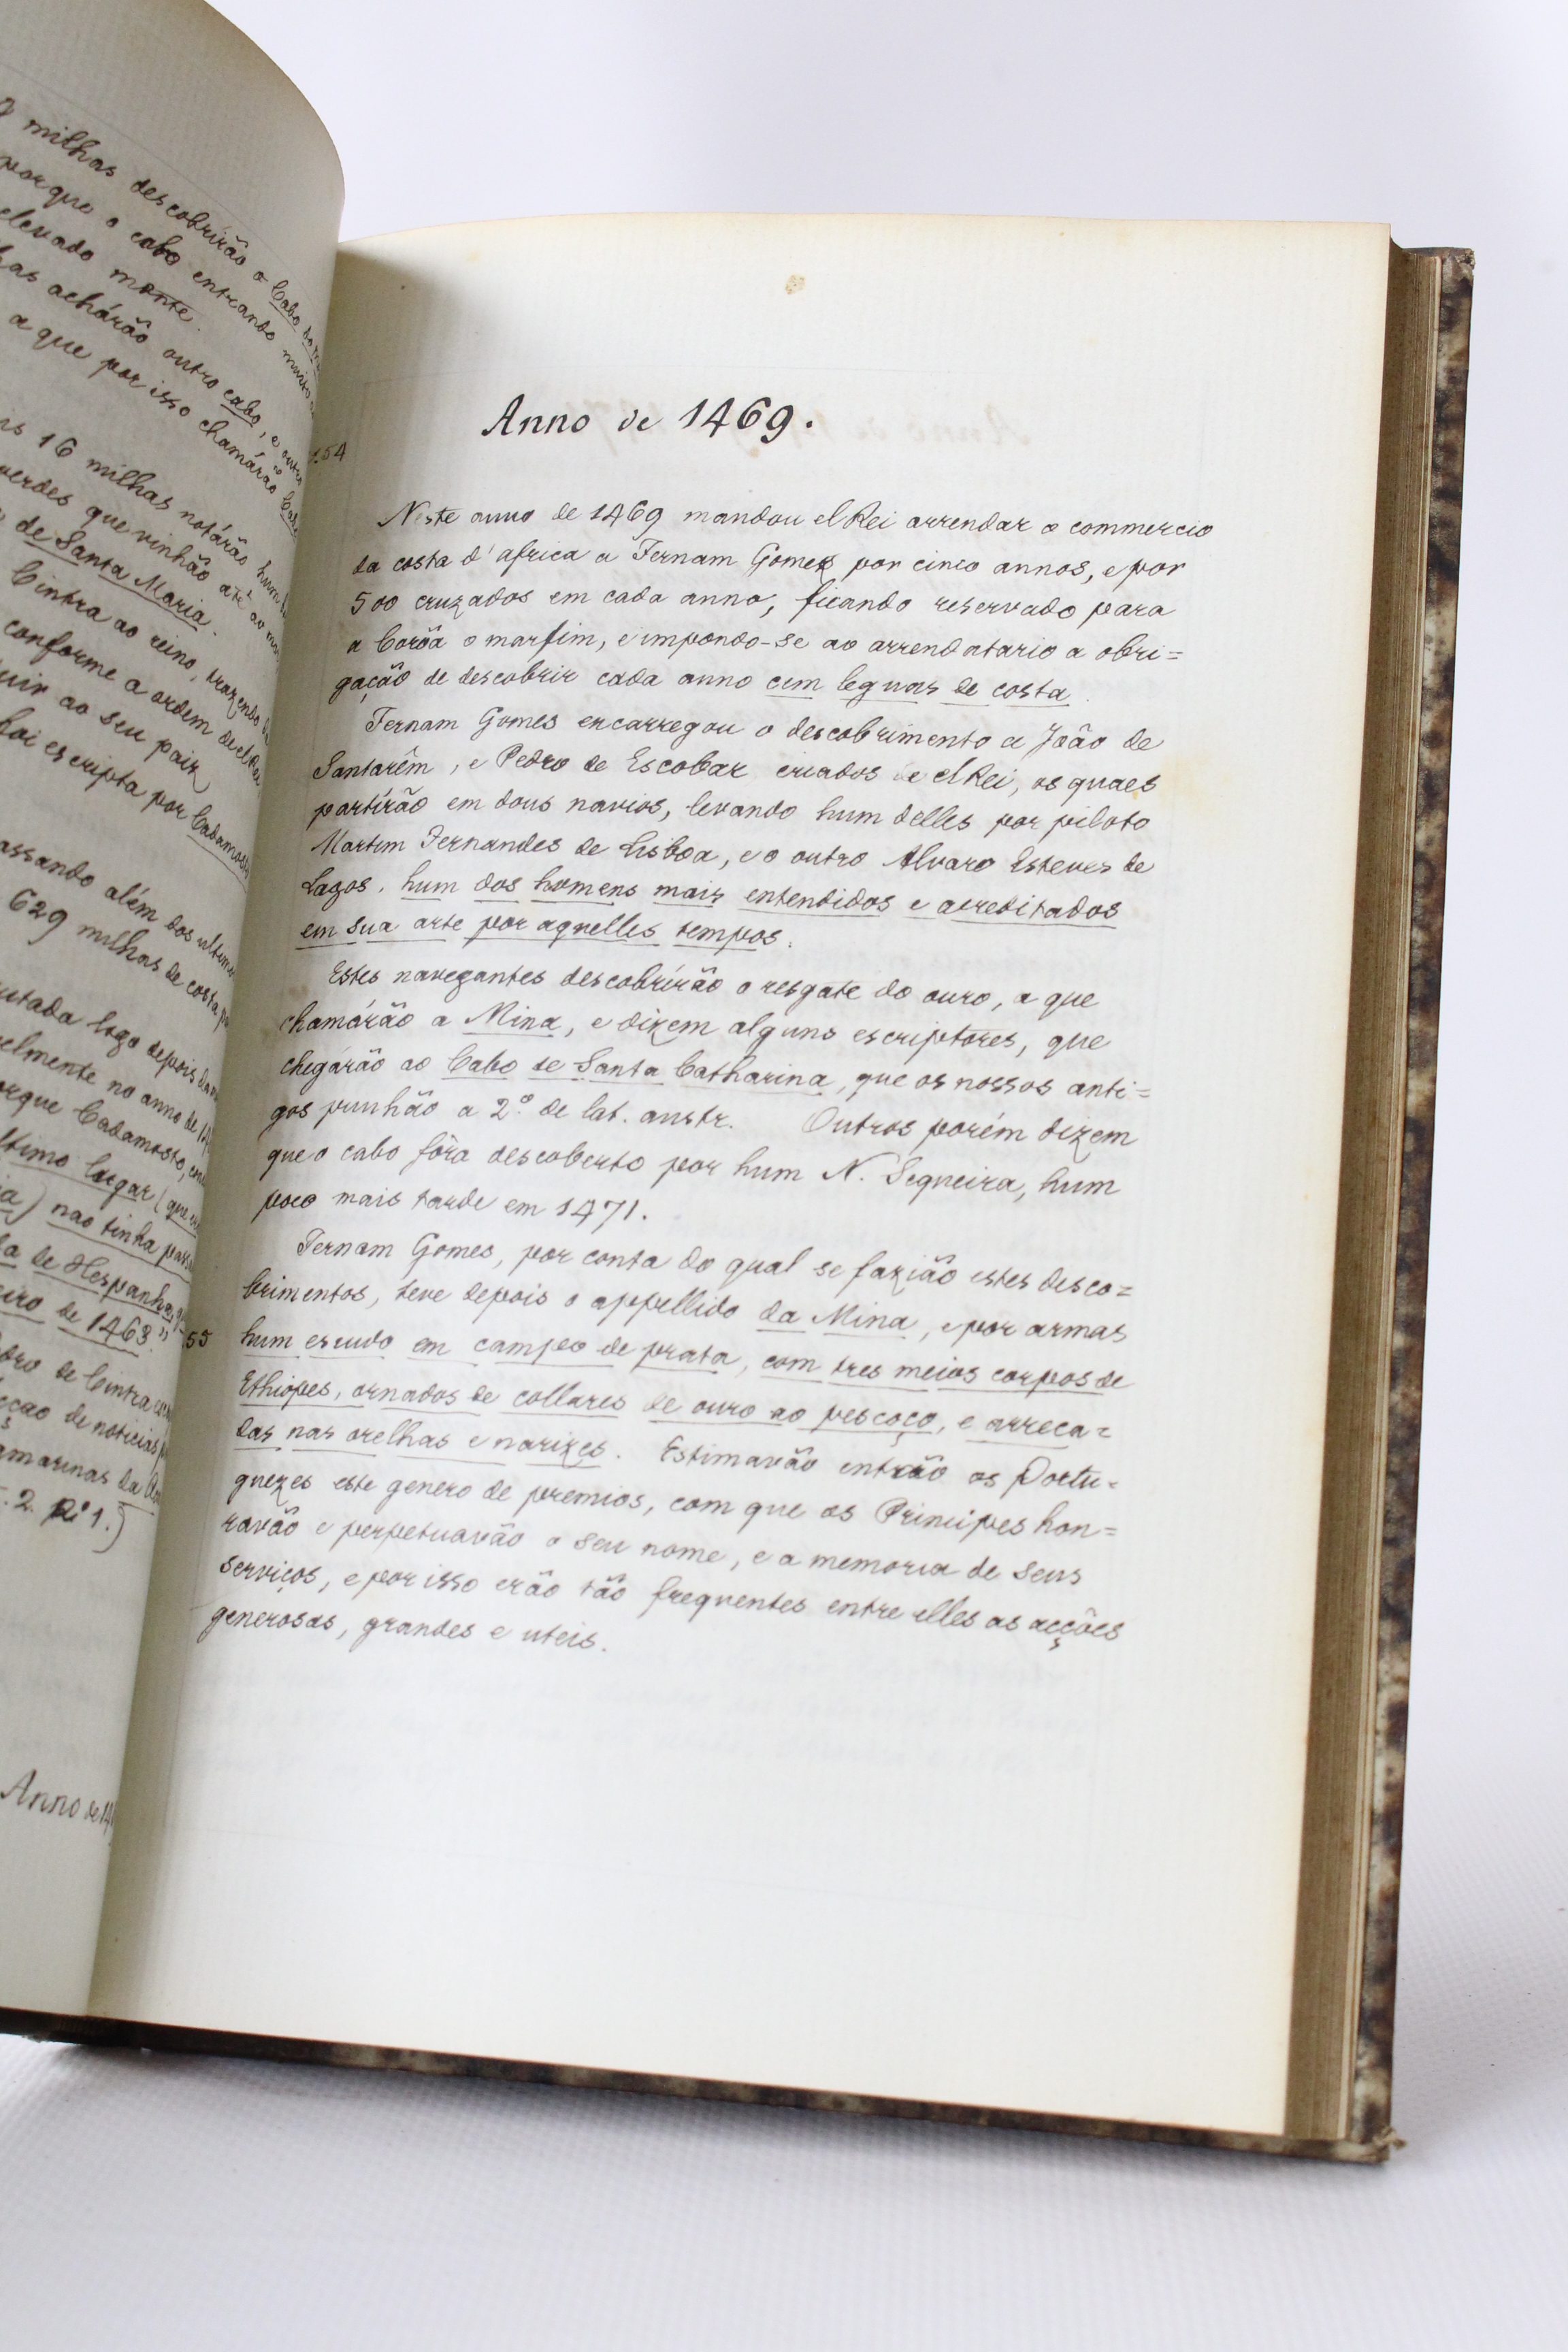 milhas descobrírão o Cabo do
porque o cabo entrando muito
elevado monte.
achárão outro cabo, e outra
a que por isso chamárão Cabo
16 milhas notárão hum
verdes que vinhão até ao mar
de Santa Maria.
Cintra ao reino, trazendo
conforme a ordem del Rei
ao seu paiz
foi escripta por Cadamosto
passando além dos ultimos
629 milhas de costa
logo depois da
no anno de
porque Cadamosto,
ultimo lugar (que
não tinha
de Hespanha,
de 1463."
de Cintra
de noticias
da
2. Nº 1.)
Anno de 14
154
Anno de 1469.
Neste anno de 1469 mandou el Rei arrendar o commercio
da costa d'africa a Fernam Gomez por cinco annos, e por
500 cruzados em cada anno, ficando reservado para
a Corôa o marfim, e impondo-se ao arrendatario a obri=
gação de descobrir cada anno cem leguas de costa.
Fernam Gomes encarregou o descobrimento a João de
Santarêm, e Pedro de Escobar criados de el Rei, os quaes
partírão em dous navios, levando hum delles por piloto
Martim Fernandes de Lisboa, e o outro Alvaro Esteves de
Lagos, hum dos homens mais entendidos e acreditados
em sua arte por aquelles tempos.
Estes navegantes descobrírão o resgate do ouro, a que
chamárão a Mina, e dizem alguns escriptores, que
chegárão ao Cabo de Santa Catharina, que os nossos anti=
gos punhão a 2º de lat. austr. Outros porém dizem
que o cabo fôra descoberto por hum N. Sequeira, hum
poco mais tarde em 1471.
Fernam Gomes, por conta do qual se fazião estes desco=
brimentos, teve depois o appellido da Mina, e por armas
55
hum escudo em campo de prata, com tres meios corpos de
Ethiopes, ornados de collares de ouro ao pescoço, e arreca=
das nas orelhas e narizes. Estimavão então os Portu=
guezes este genero de premios, com que os Principes hon=
ravão e perpetuavão o seu nome, e a memoria de seus
serviços, e por isso erão tão frequentes entre elles as acções
generosas, grandes e uteis.